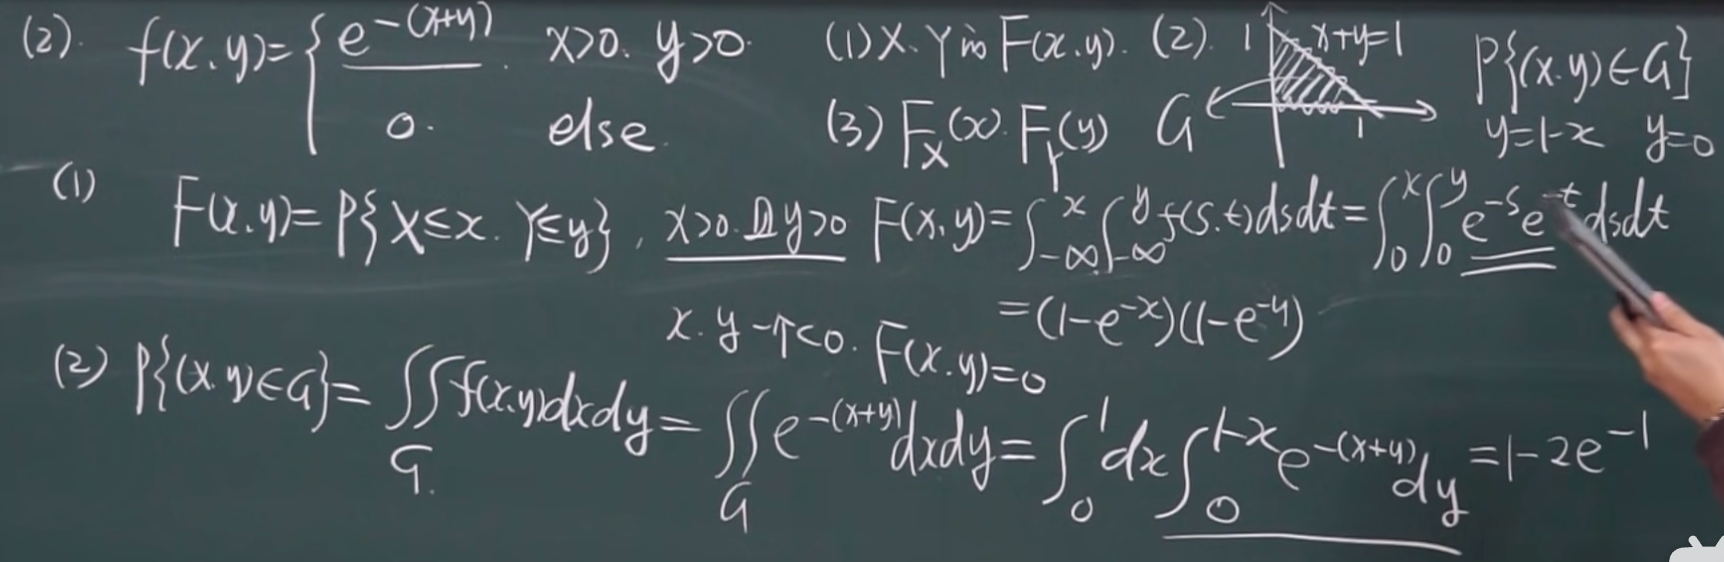 (2). f(x.y)={ e^{-(x+y)}. x>0. y>0. (1) X.Y的 F(x.y). (2). 1 x+y=1 P{(x.y)∈G}
0. else. (3) F_X(x). F_Y(y) G 1 y=1-x y=0
(1) F(x.y)=P{X≤x. Y≤y}, x>0.且y>0 F(x,y)=∫_{-∞}^{x}∫_{-∞}^{y}f(s.t)dsdt=∫_0^x∫_0^y e^{-s}e^{-t}dsdt
=(1-e^{-x})(1-e^{-y})
x.y-个<0. F(x.y)=0
(2) P{(x.y)∈G}=∬_G f(x.y)dxdy=∬_G e^{-(x+y)}dxdy=∫_0^1dx∫_0^{1-x}e^{-(x+y)}dy=1-2e^{-1}